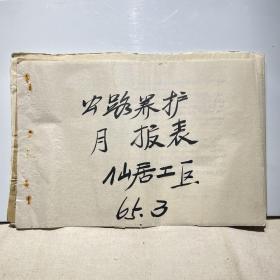 公路养护
月报表
仙居工区
65.3